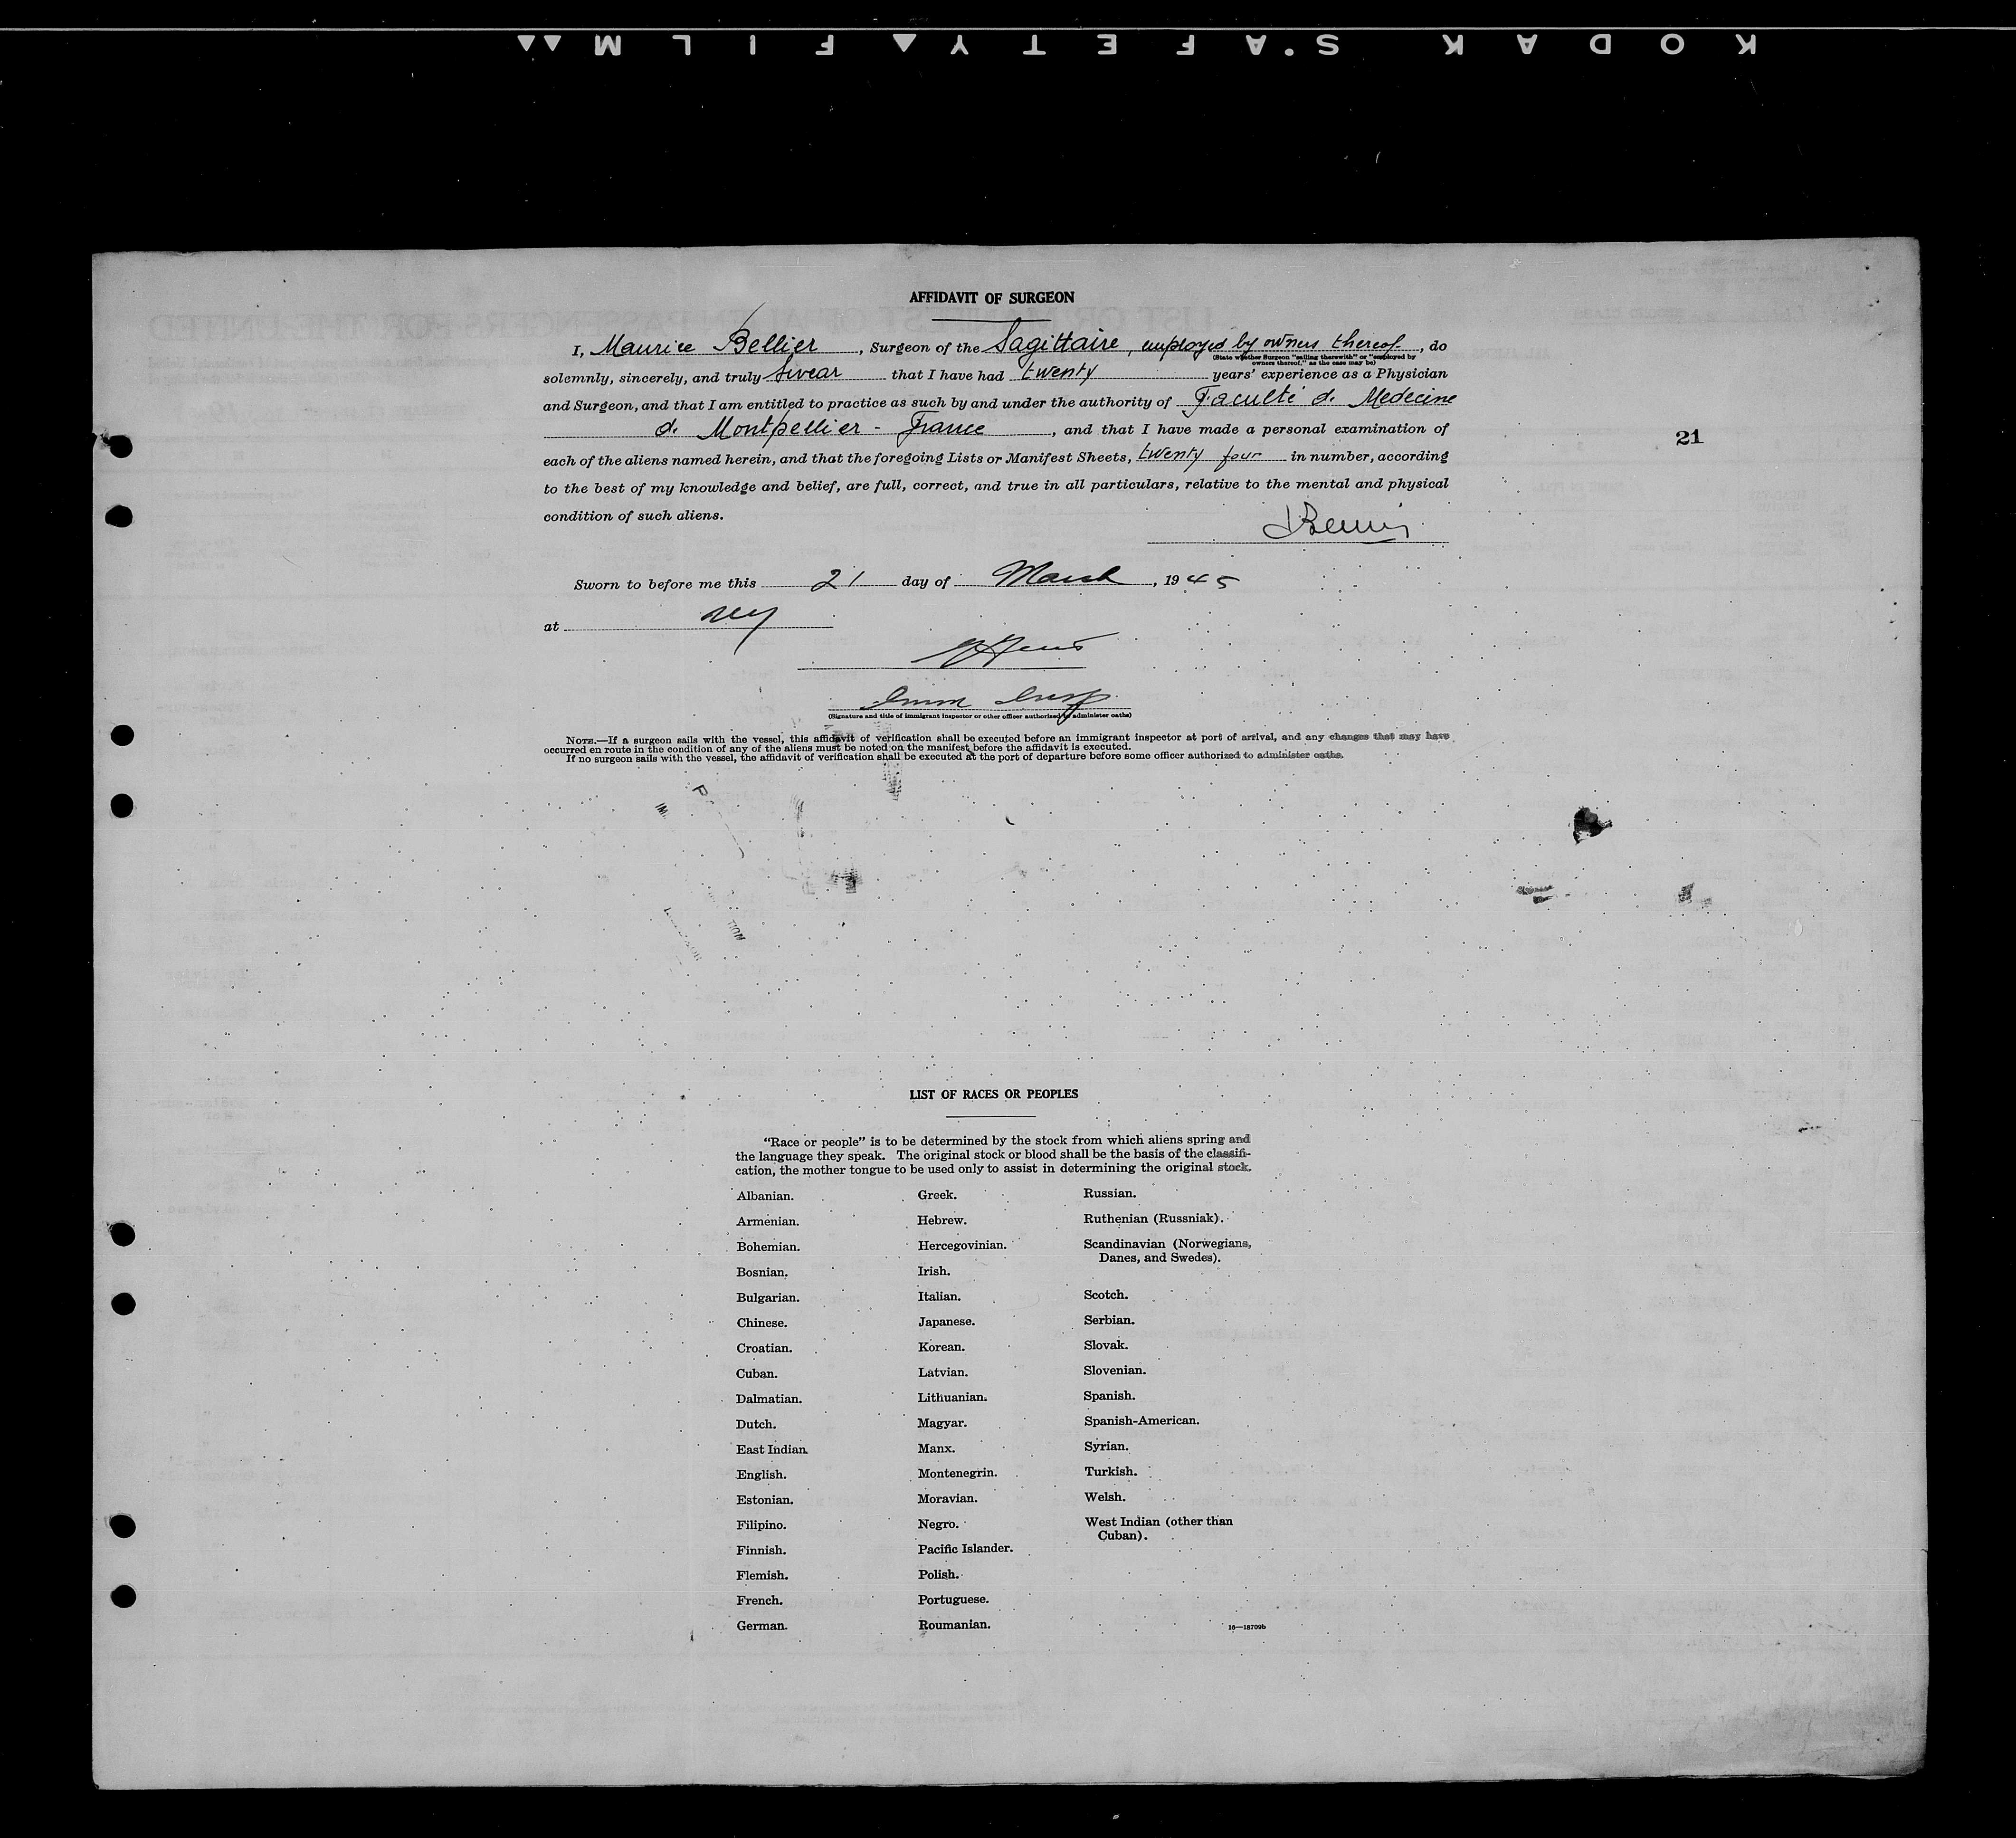 KODAK SAFETY FILM
AFFIDAVIT OF SURGEON
I, Maurice Bellier, Surgeon of the Sagittaire, employed by owners thereof, do
(State whether Surgeon "sailing therewith" or "employed by
owners thereof," as the case may be)
solemnly, sincerely, and truly swear that I have had twenty years' experience as a Physician
and Surgeon, and that I am entitled to practice as such by and under the authority of Faculté de Medecine
de Montpellier - France, and that I have made a personal examination of
21
each of the aliens named herein, and that the foregoing Lists or Manifest Sheets, twenty four in number, according
to the best of my knowledge and belief, are full, correct, and true in all particulars, relative to the mental and physical
condition of such aliens.
Sworn to before me this 21 day of March, 1945
at NY
Imm Insp
(Signature and title of immigrant inspector or other officer authorized to administer oaths)
NOTE.—If a surgeon sails with the vessel, this affidavit of verification shall be executed before an immigrant inspector at port of arrival, and any changes that may have
occurred en route in the condition of any of the aliens must be noted on the manifest before the affidavit is executed.
If no surgeon sails with the vessel, the affidavit of verification shall be executed at the port of departure before some officer authorized to administer oaths.
LIST OF RACES OR PEOPLES
"Race or people" is to be determined by the stock from which aliens spring and
the language they speak. The original stock or blood shall be the basis of the classifi-
cation, the mother tongue to be used only to assist in determining the original stock.
Albanian.
Armenian.
Bohemian.
Bosnian.
Bulgarian.
Chinese.
Croatian.
Cuban.
Dalmatian.
Dutch.
East Indian.
English.
Estonian.
Filipino.
Finnish.
Flemish.
French.
German.
Greek.
Hebrew.
Hercegovinian.
Irish.
Italian.
Japanese.
Korean.
Latvian.
Lithuanian.
Magyar.
Manx.
Montenegrin.
Moravian.
Negro.
Pacific Islander.
Polish.
Portuguese.
Roumanian.
Russian.
Ruthenian (Russniak).
Scandinavian (Norwegians,
Danes, and Swedes).
Scotch.
Serbian.
Slovak.
Slovenian.
Spanish.
Spanish-American.
Syrian.
Turkish.
Welsh.
West Indian (other than
Cuban).
16—18709b